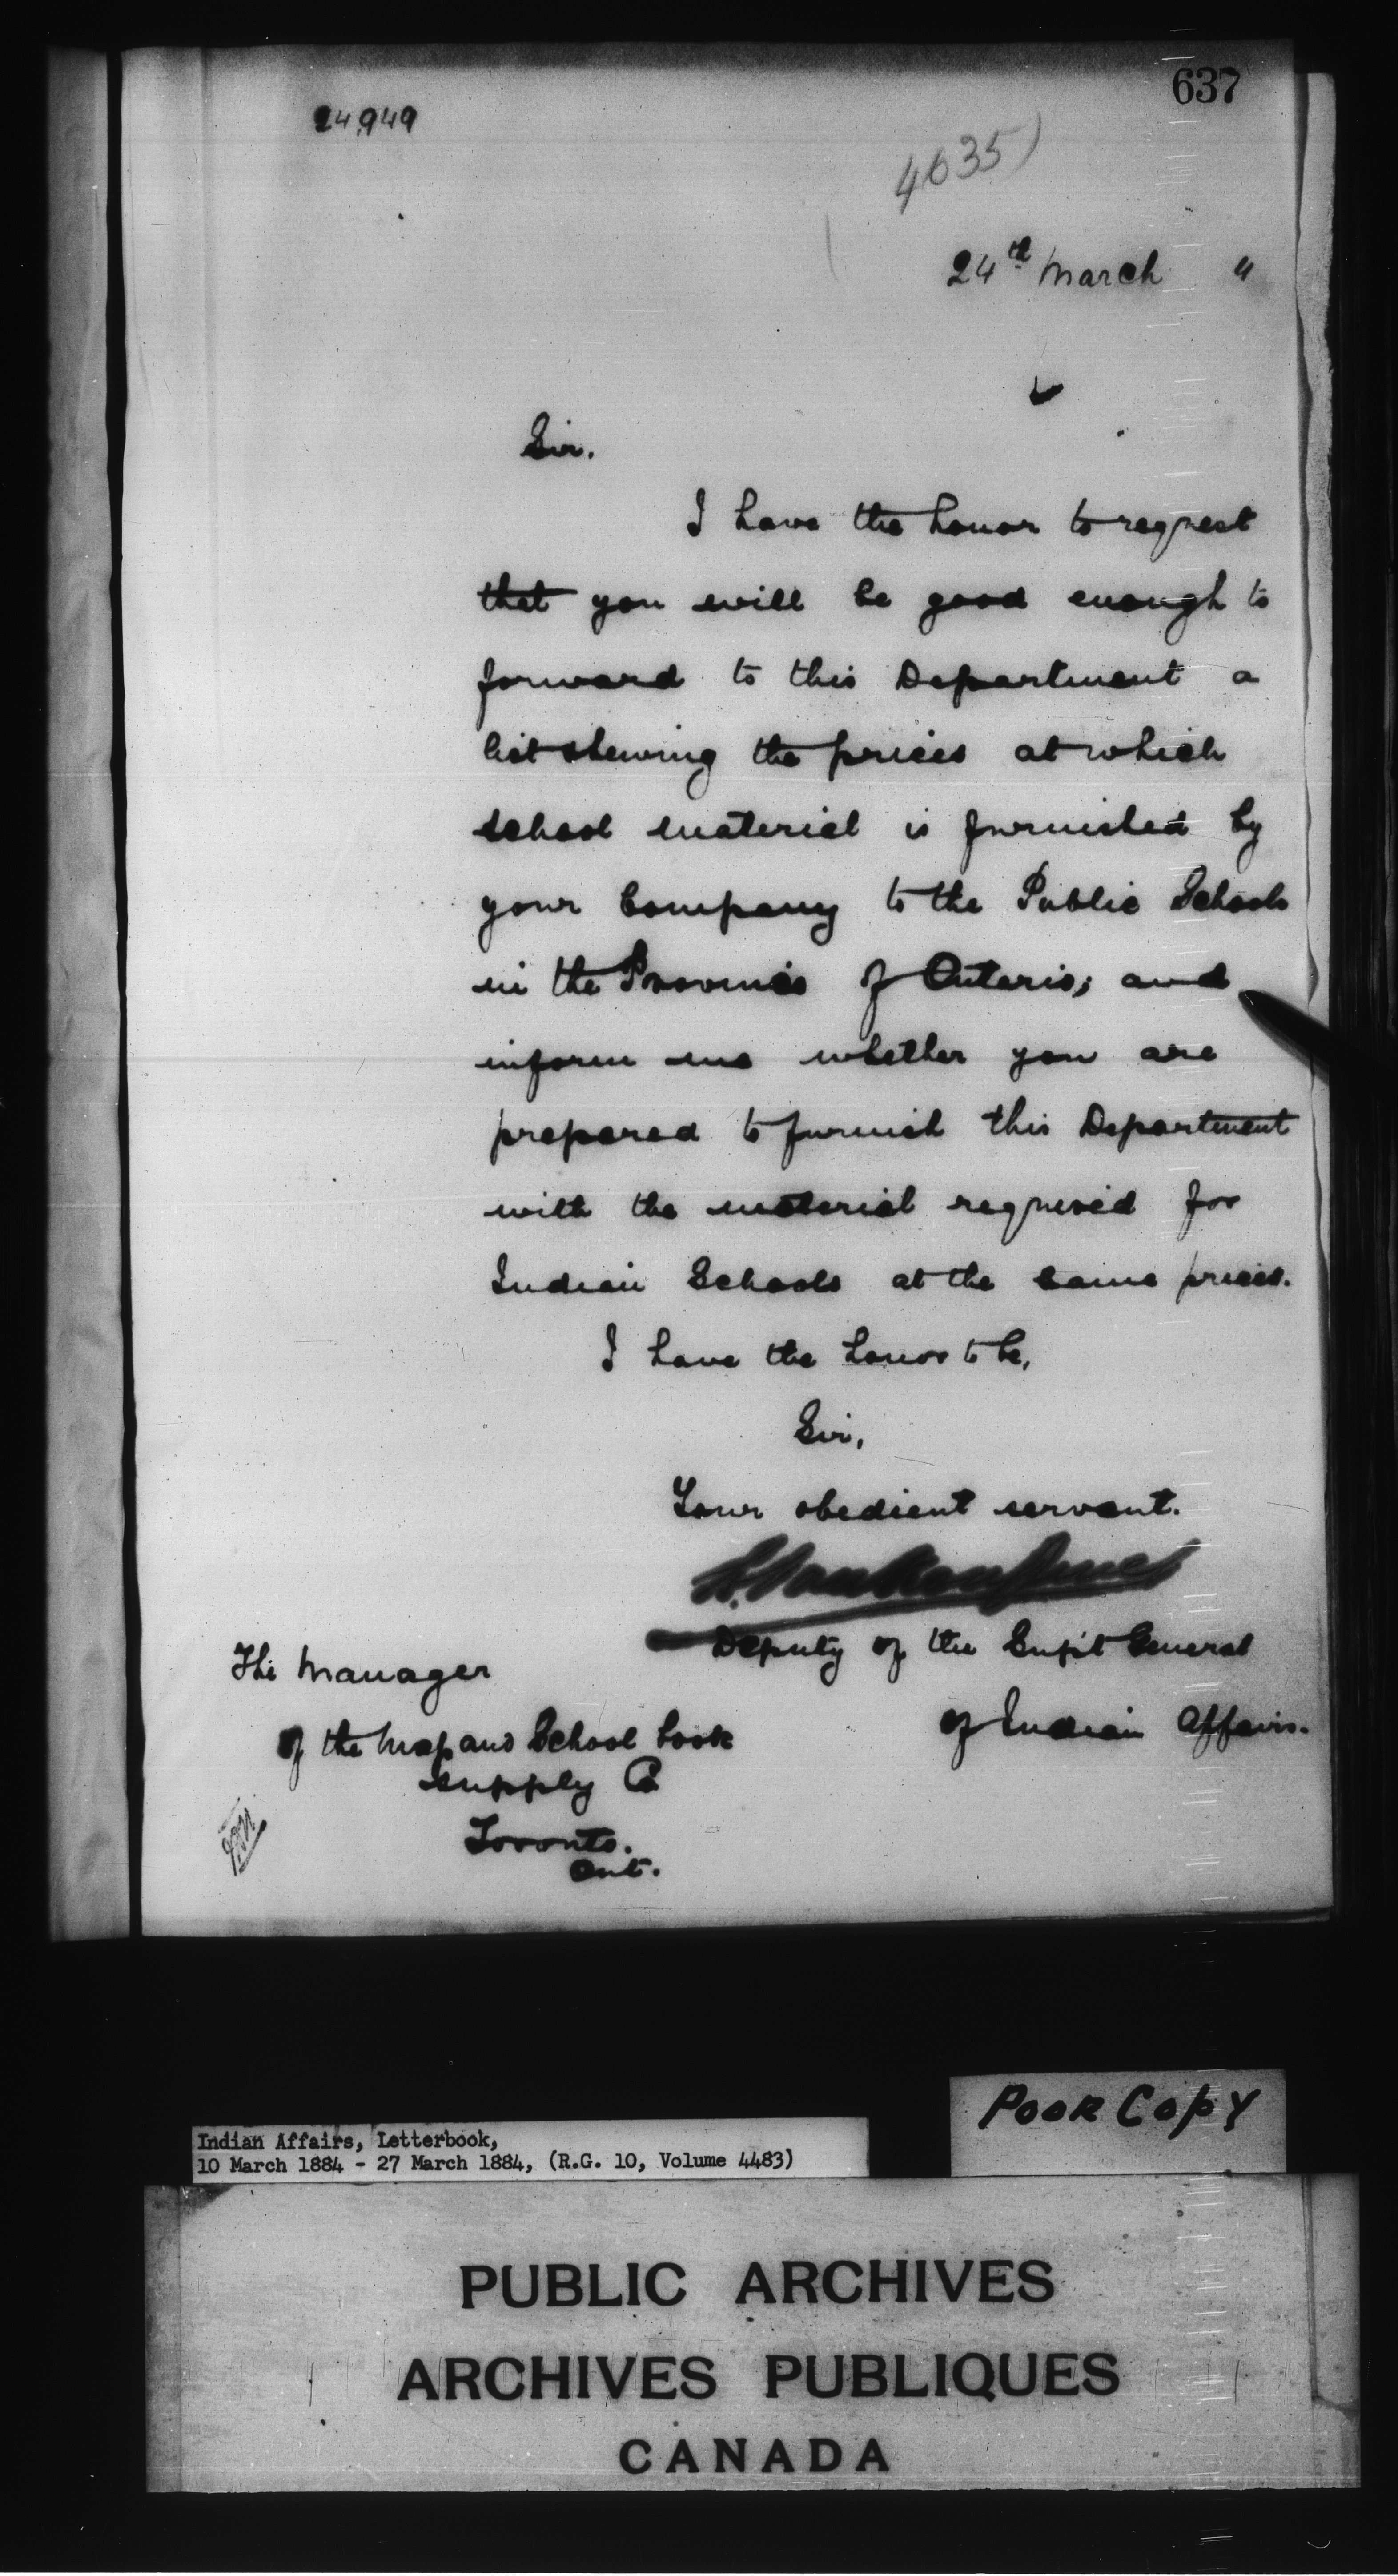 637
24,949
4635)
24th March "
Sir.
I have the honor to request
that you will be good enough to
forward to this Department a
list shewing the prices at which
school material is furnished by
your Company to the Public Schools
in the Province of Ontario; and
inform me whether you are
prepared to furnish this Department
with the material required for
Indian Schools at the same prices.
I have the honor to be,
Sir,
Your obedient servant.
L. Vankoughnet
Deputy of the Supt General
of Indian Affairs.
The Manager
of the Map and School book
supply Co
Toronto.
Ont.
POOR COPY
Indian Affairs, Letterbook,
10 March 1884 - 27 March 1884, (R.G. 10, Volume 4483)
PUBLIC ARCHIVES
ARCHIVES PUBLIQUES
CANADA